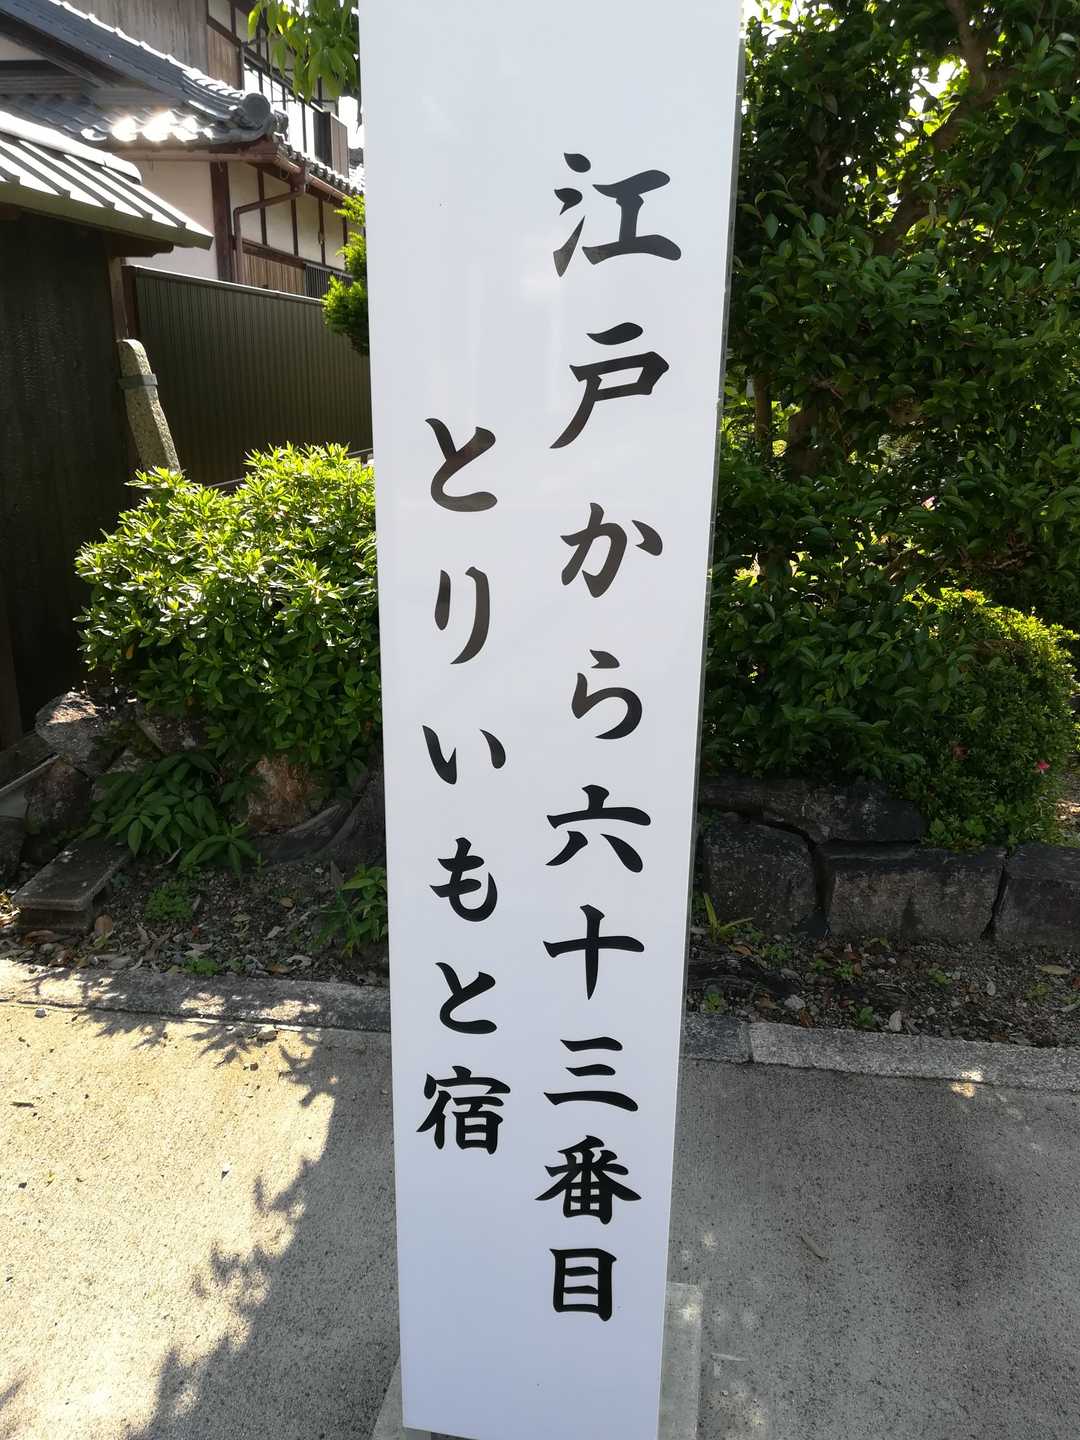 江戸から六十三番目
とりいもと宿